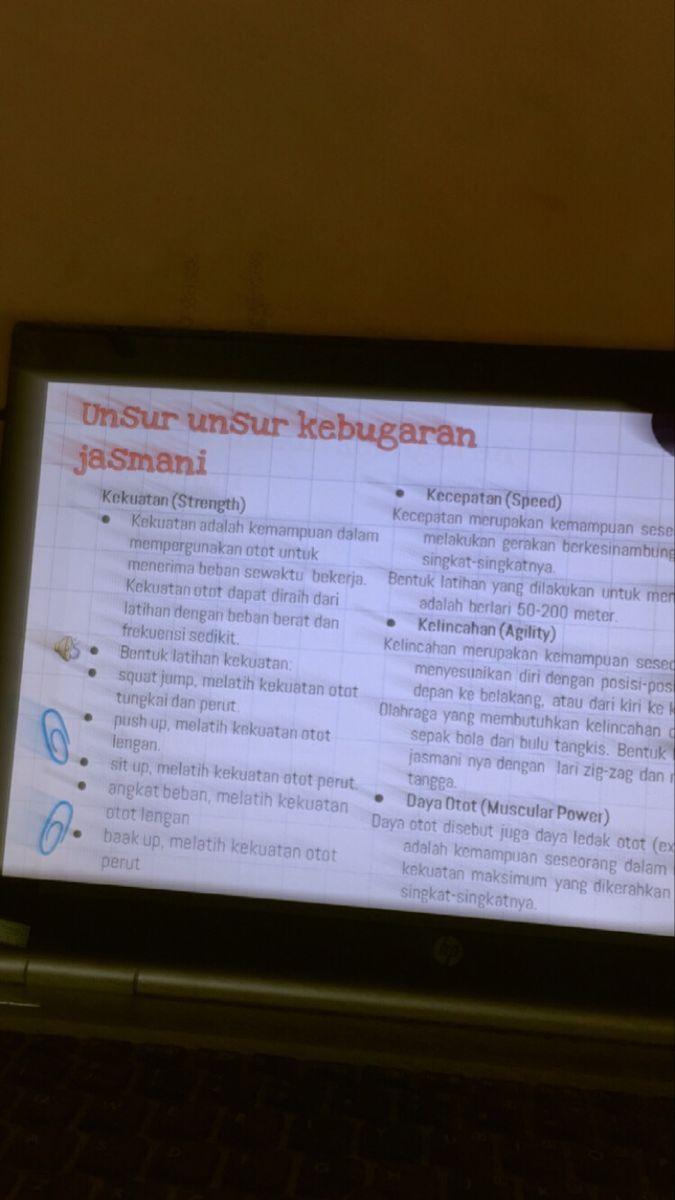 Unsur unsur kebugaran
jasmani
Kekuatan (Strength)
Kekuatan adalah kemampuan dalam
mempergunakan otot untuk
menerima beban sewaktu bekerja.
Kekuatan otot dapat diraih dari
latihan dengan beban berat dan
frekuensi sedikit.
Bentuk latihan kekuatan:
squat jump, melatih kekuatan otot
tungkai dan perut.
push up, melatih kekuatan otot
lengan.
sit up, melatih kekuatan otot perut.
angkat beban, melatih kekuatan
otot lengan
baak up, melatih kekuatan otot
perut
Kecepatan (Speed)
Kecepatan merupakan kemampuan sese
melakukan gerakan berkesinambung
singkat-singkatnya.
Bentuk latihan yang dilakukan untuk men
adalah berlari 50-200 meter.
Kelincahan (Agility)
Kelincahan merupakan kemampuan seseo
menyesuaikan diri dengan posisi-posi
depan ke belakang, atau dari kiri ke k
Olahraga yang membutuhkan kelincahan
sepak bola dan bulu tangkis. Bentuk
jasmani nya dengan lari zig-zag dan
tangga.
Daya Otot (Muscular Power)
Daya otot disebut juga daya ledak otot (ex
adalah kemampuan seseorang dalam
kekuatan maksimum yang dikerahkan
singkat-singkatnya.
hp